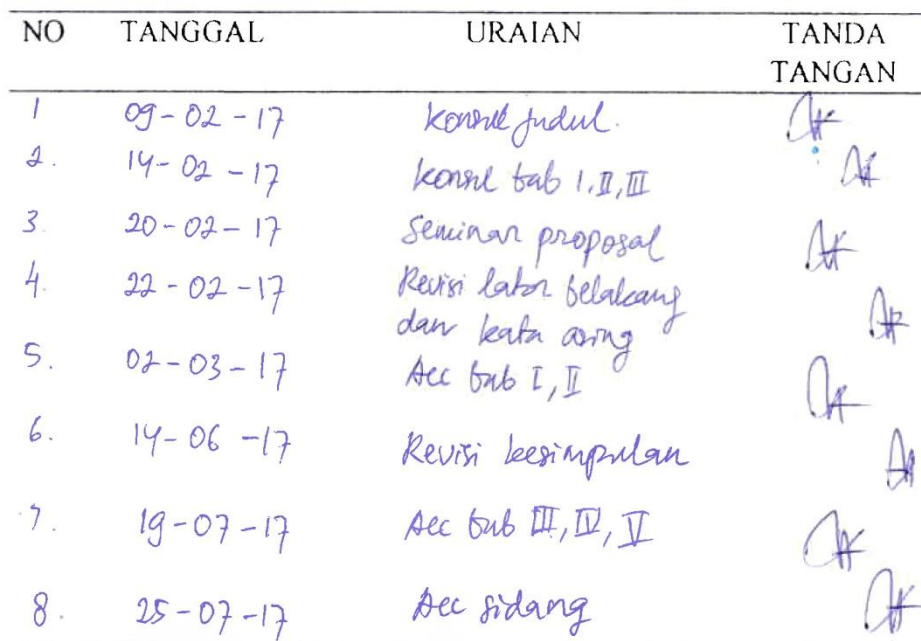 NO TANGGAL URAIAN TANDA TANGAN
1 09-02-17 Konsul judul.
2. 14-02-17 Konsul bab I, II, III
3. 20-02-17 Seminar proposal
4. 22-02-17 Revisi latar belakang
dan kata asing
5. 02-03-17 Acc bab I, II
6. 14-06-17 Revisi kesimpulan
7. 19-07-17 Acc bab III, IV, V
8. 25-07-17 Acc sidang